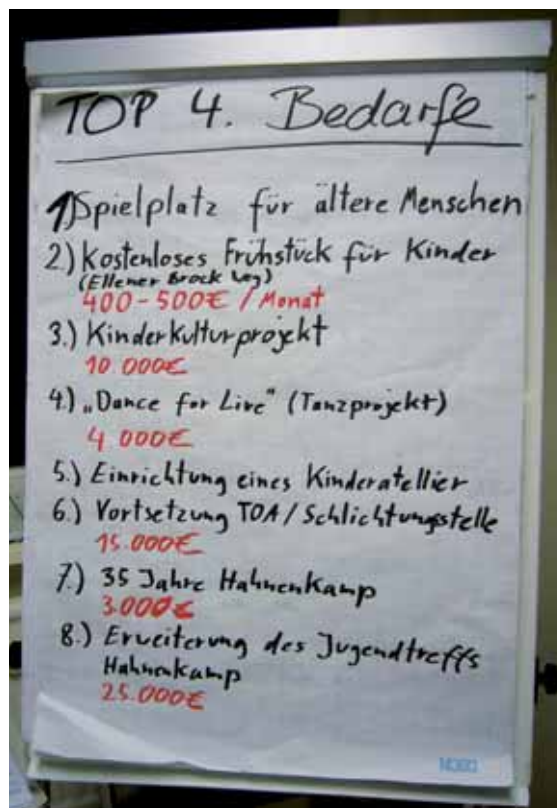 TOP 4. Bedarfe
1) Spielplatz für ältere Menschen
2.) Kostenloses Frühstück für Kinder
(Ellener Brock Weg)
400-500€ / Monat
3.) Kinderkulturprojekt
10 000€
4.) „Dance for Live" (Tanzprojekt)
4 000€
5.) Einrichtung eines Kinderatellier
6.) Vortsetzung TOA / Schlichtungstelle
15.000€
7.) 35 Jahre Hahnenkamp
3.000€
8.) Erweiterung des Jugendtreffs
Hahnenkamp
25.000€